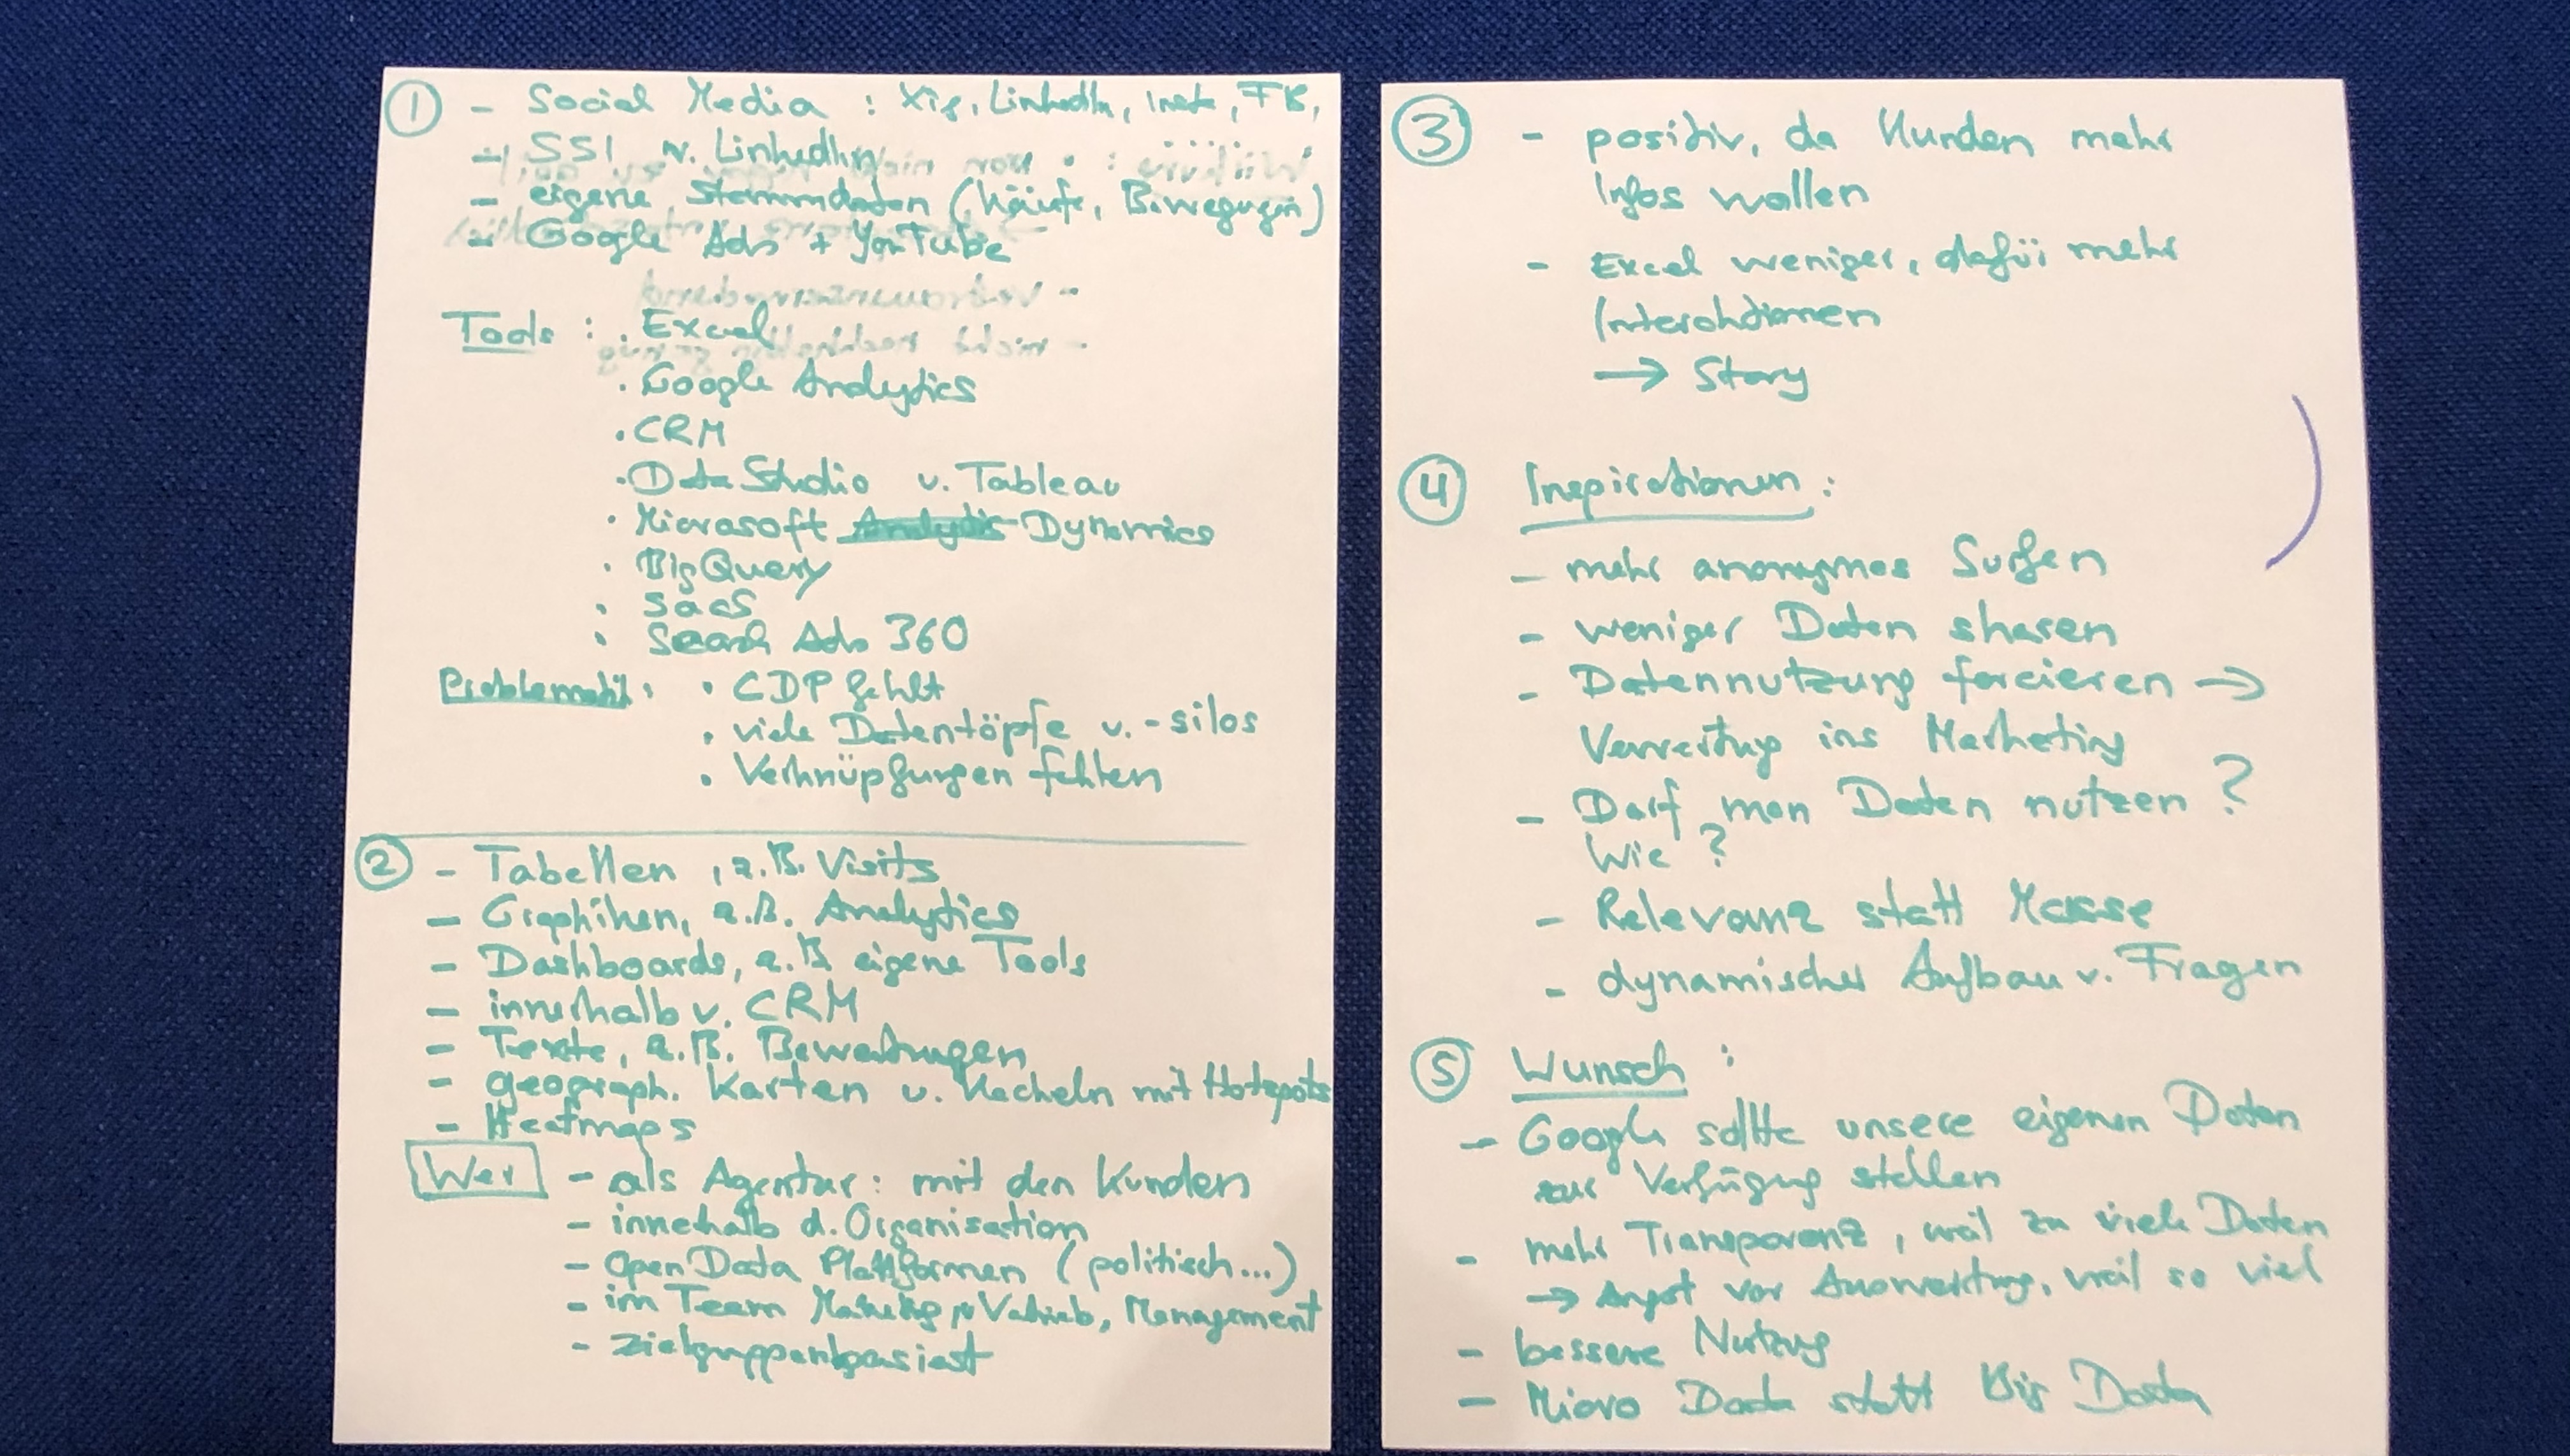 ① - Social Media : Xig, LinkedIn, Insta, FB,
- SSI v. LinkedIn
- eigene Stammdaten (Käufe, Bewegungen)
- Google Ads + YouTube
Tools : . Excel
. Google Analytics
. CRM
. Data Studio v. Tableau
. Microsoft Analytis Dynamics
. BigQuery
. SaaS
. Search Ads 360
Problematik: . CDP fehlt
. viele Datentöpfe u. -silos
. Verknüpfungen fehlen
② - Tabellen, z.B. Visits
- Graphiken, z.B. Analytics
- Dashboards, z.B. eigene Tools
- innerhalb v. CRM
- Texte, z.B. Bewertungen
- geograph. Karten u. Kacheln mit Hotspots
- Heatmaps
Wer - als Agentur: mit den Kunden
- innerhalb d. Organisation
- Open Data Plattformen (politisch...)
- im Team Marketing Vertrieb, Management
- zielgruppenbasiert
③ - positiv, da Kunden mehr
Infos wollen
- Excel weniger, dafür mehr
Interaktionen
→ Story
④ Inspirationen :
- mehr anonymes Surfen
- weniger Daten sharen
- Datennutzung forcieren →
Verwertung ins Marketing
- Darf man Daten nutzen ?
Wie ?
- Relevanz statt Masse
- dynamischer Aufbau v. Fragen
⑤ Wunsch :
- Google sollte unsere eigenen Daten
zur Verfügung stellen
- mehr Transparenz, weil zu viele Daten
→ Angst vor Auswertung, weil so viel
- bessere Nutzung
- Micro Data statt Big Data